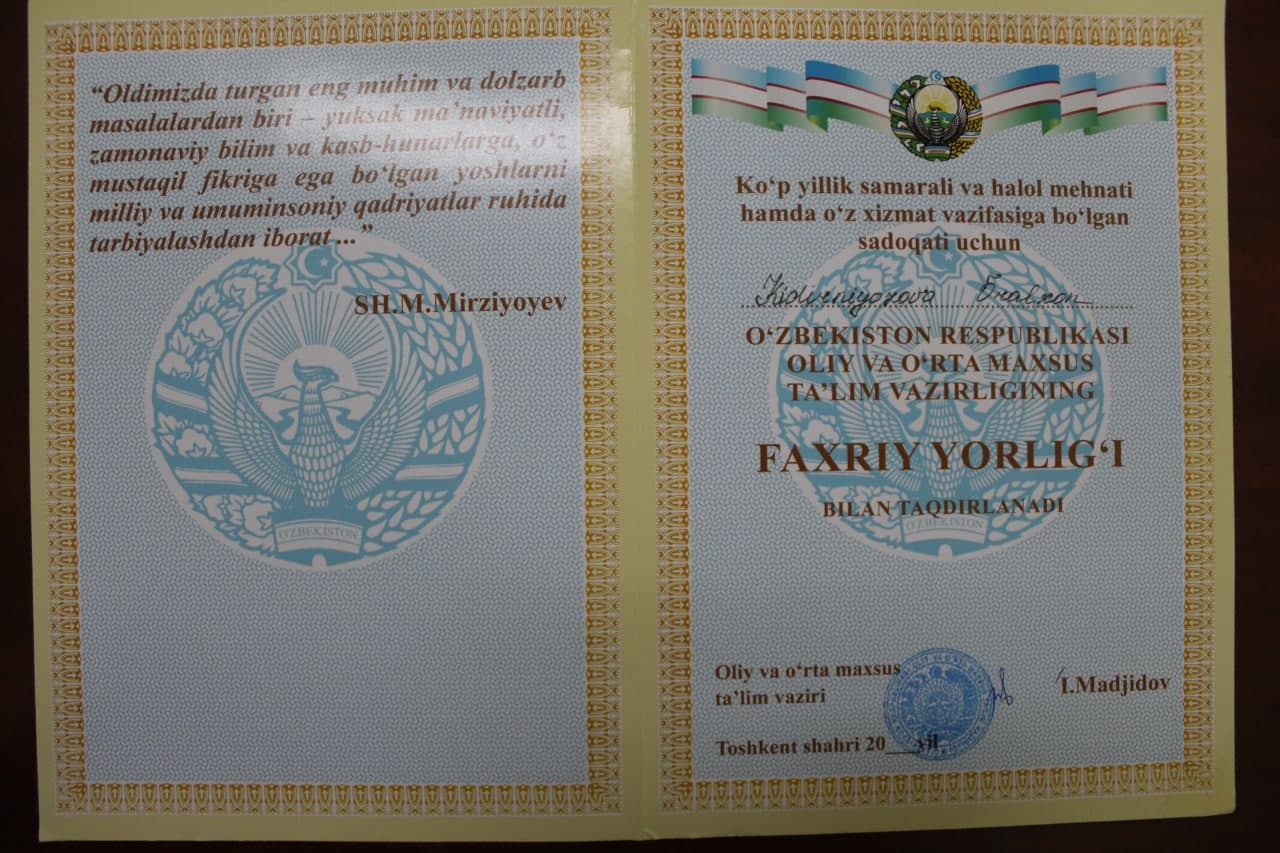 “Oldimizda turgan eng muhim va dolzarb
masalalardan biri – yuksak ma’naviyatli,
zamonaviy bilim va kasb-hunarlarga, o‘z
mustaqil fikriga ega bo‘lgan yoshlarni
milliy va umuminsoniy qadriyatlar ruhida
tarbiyalashdan iborat ...”
SH.M.Mirziyoyev
O‘ZBEKISTON
Ko‘p yillik samarali va halol mehnati
hamda o‘z xizmat vazifasiga bo‘lgan
sadoqati uchun
O‘ZBEKISTON RESPUBLIKASI
OLIY VA O‘RTA MAXSUS
TA’LIM VAZIRLIGINING
FAXRIY YORLIG‘I
BILAN TAQDIRLANADI
O‘ZBEKISTON
Oliy va o‘rta maxsus
ta’lim vaziri
I.Madjidov
Toshkent shahri 20___yil